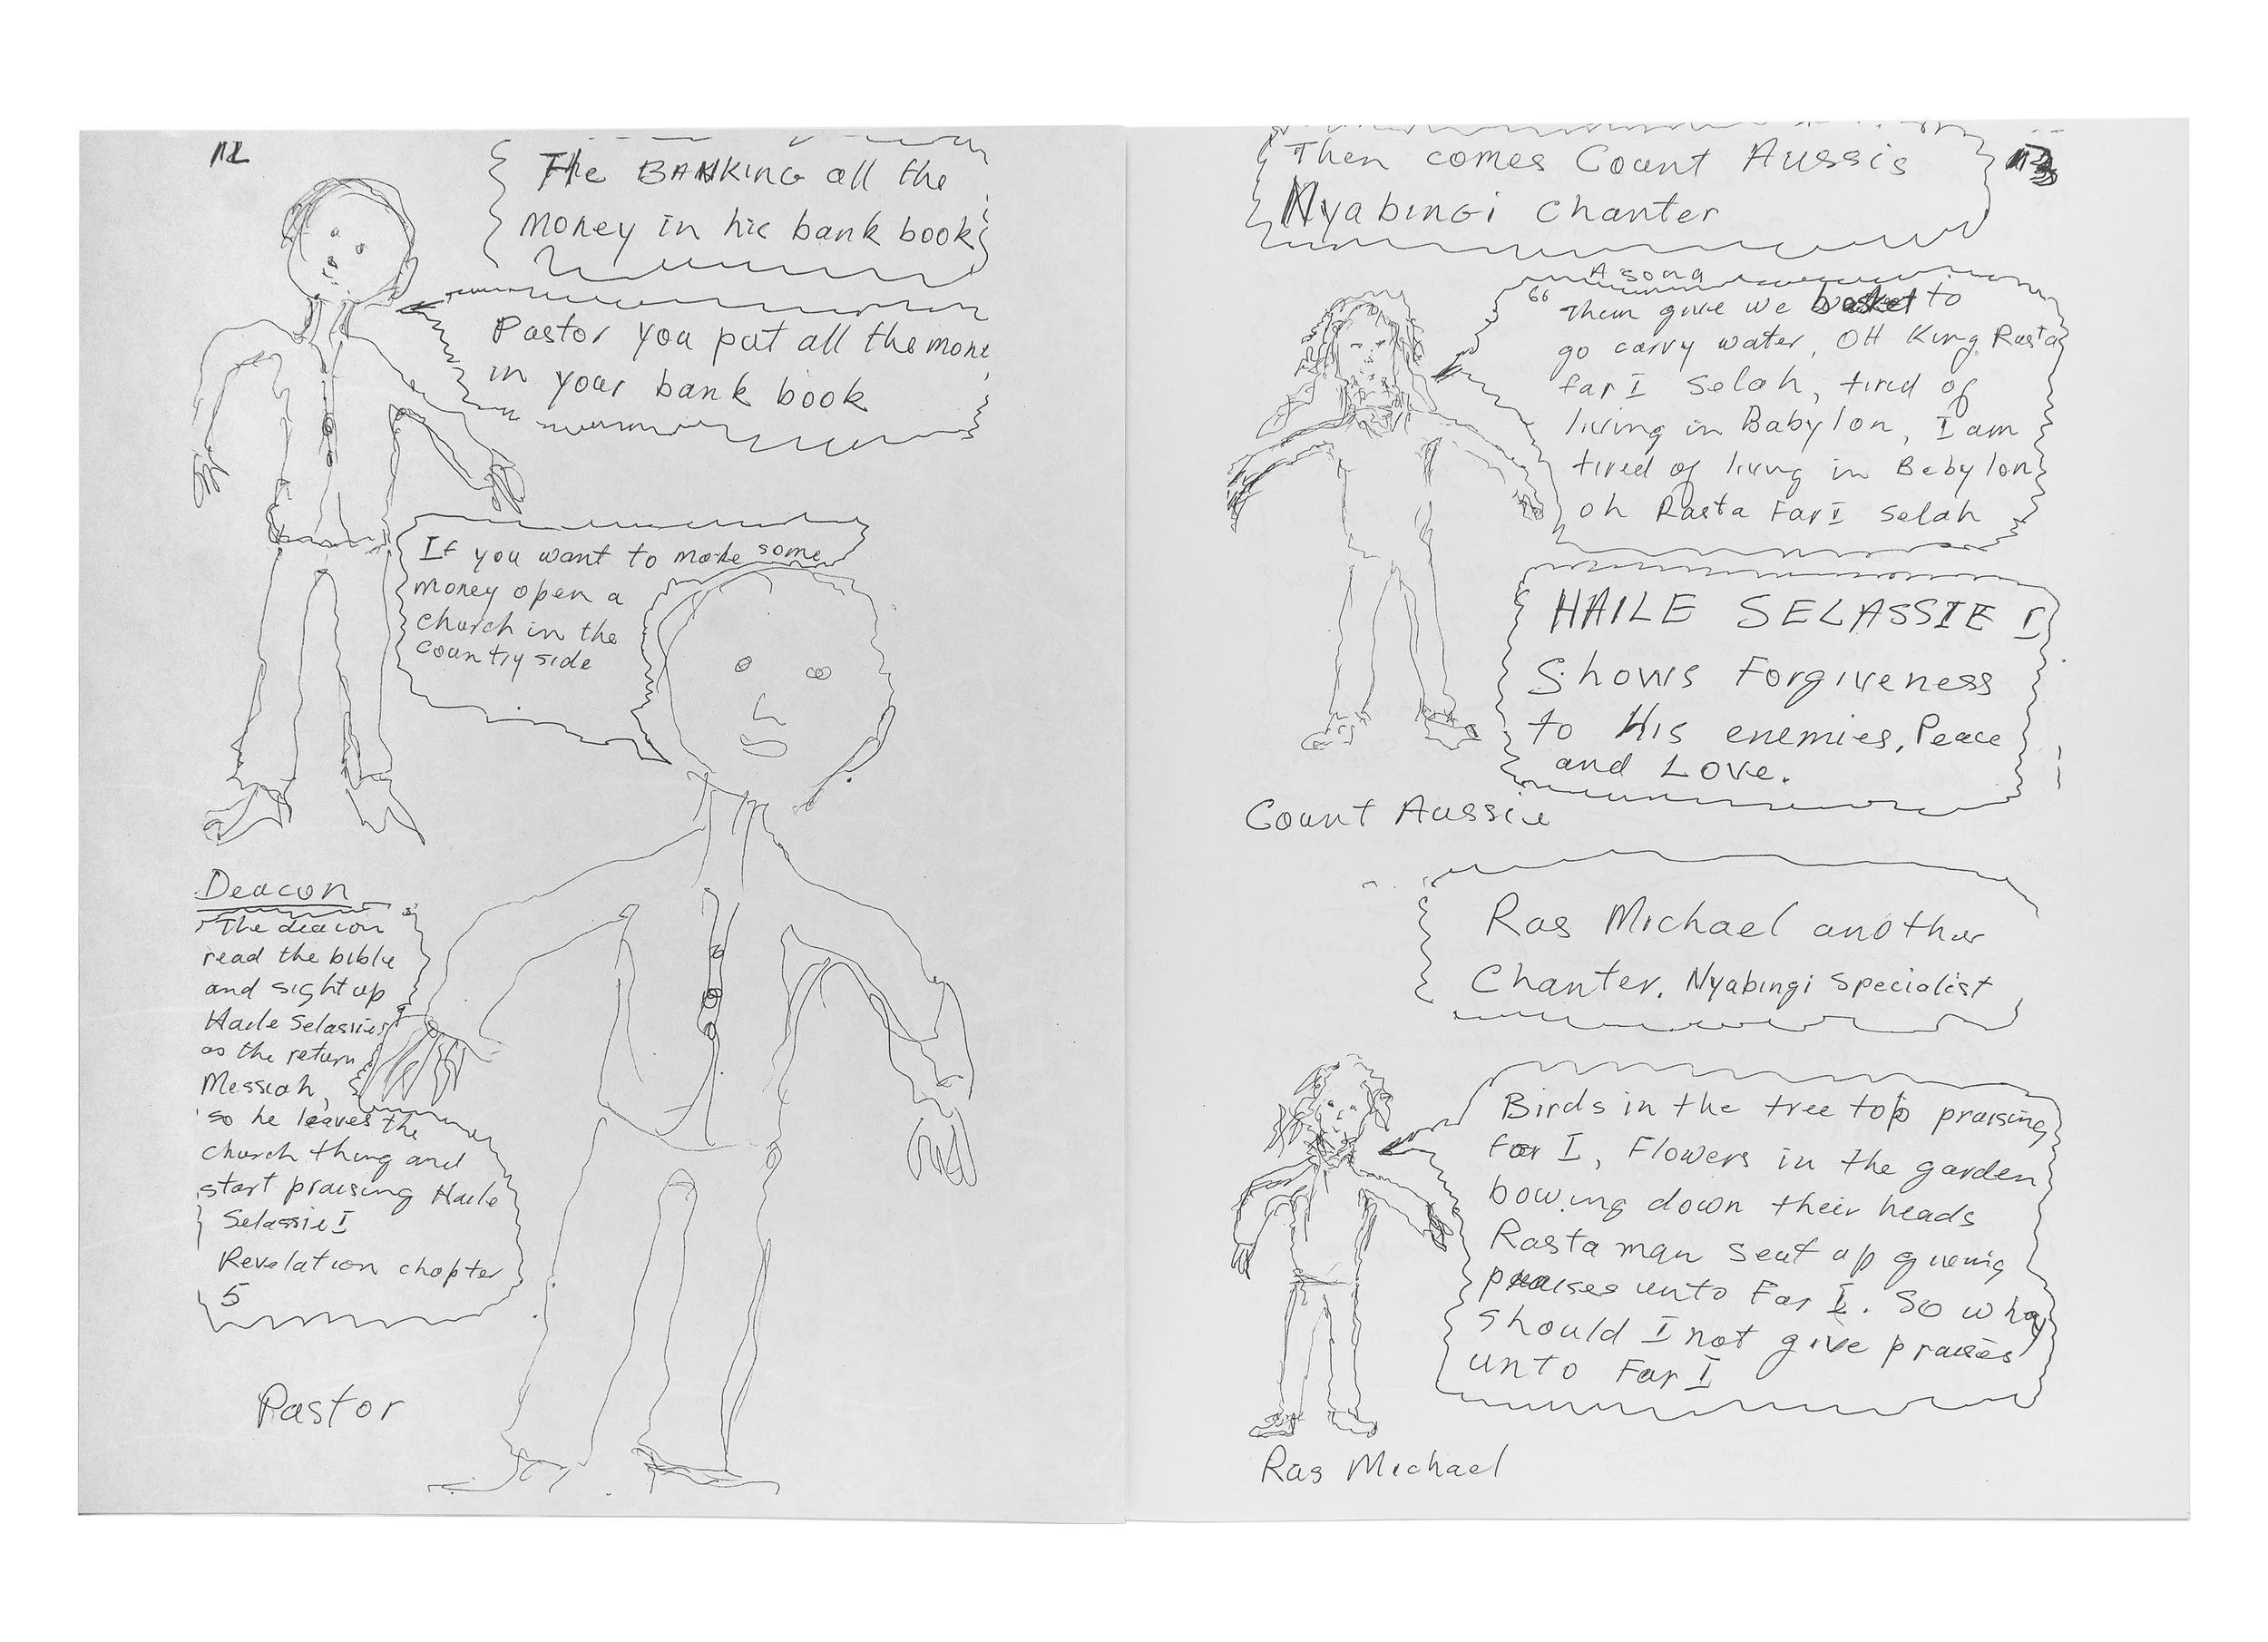 12
The BANKING all the
money in hic bank book
Pastor you put all the mone
in your bank book
If you want to make some
money open a
church in the
country side
Deacon
The deacon
read the bible
and sight up
Haile Selassie I
as the return
Messiah,
so he leaves the
church thing and
start praising Haile
Selassie I
Revelation chapter
5
Pastor
13
Then comes Count Aussis
Nyabingi chanter
A song
"Them give we basket to
go carry water, OH King Rasta
far I Selah, tired of
living in Babylon, I am
tired of living in Bebylon
oh Rasta Far I selah
HAILE SELASSIE I
Shows Forgiveness
to His enemies, Peace
and Love.
Count Aussie
Ras Michael another
Chanter. Nyabingi specialist
Birds in the tree top praising
far I, Flowers in the garden
bowing down their heads
Rasta man seat up giveing
praises unto Far I. So why
should I not give praises
unto Far I
Ras Michael